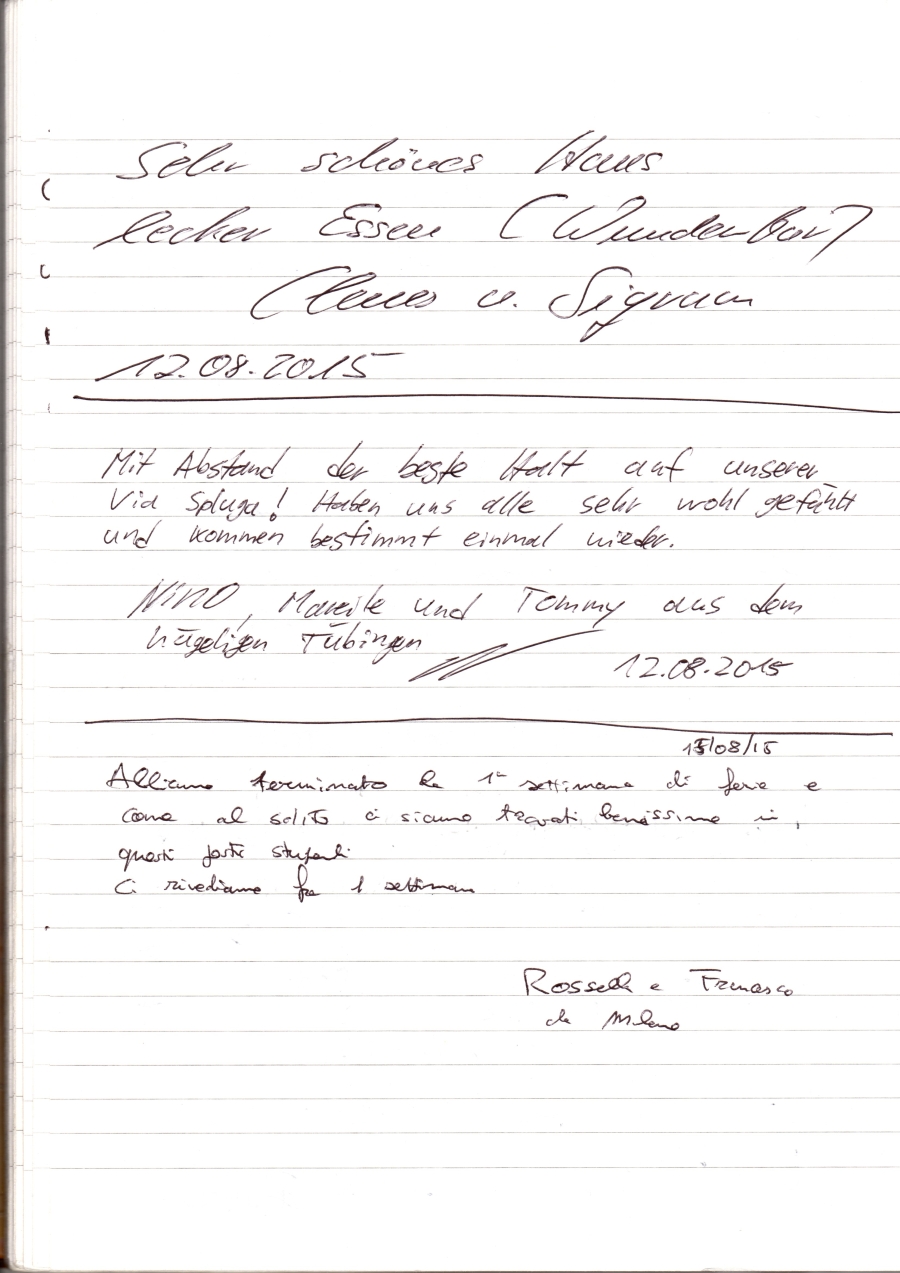 Sehr schönes Haus
lecker Essen (Wunderbar)
Claus u. Sigrun
12.08.2015
Mit Abstand der beste Halt auf unserer
Via Spluga! Haben uns alle sehr wohl gefühlt
und kommen bestimmt einmal wieder.
Nino, Mareile und Tommy aus dem
hügeligen Tübingen
12.08.2015
15/08/15
Abbiamo terminato la 1ª settimana di ferie e
come al solito ci siamo trovati benissimo in
questi posti stupendi
Ci rivediamo fra 1 settimana
Rossella e Francesco
da Milano